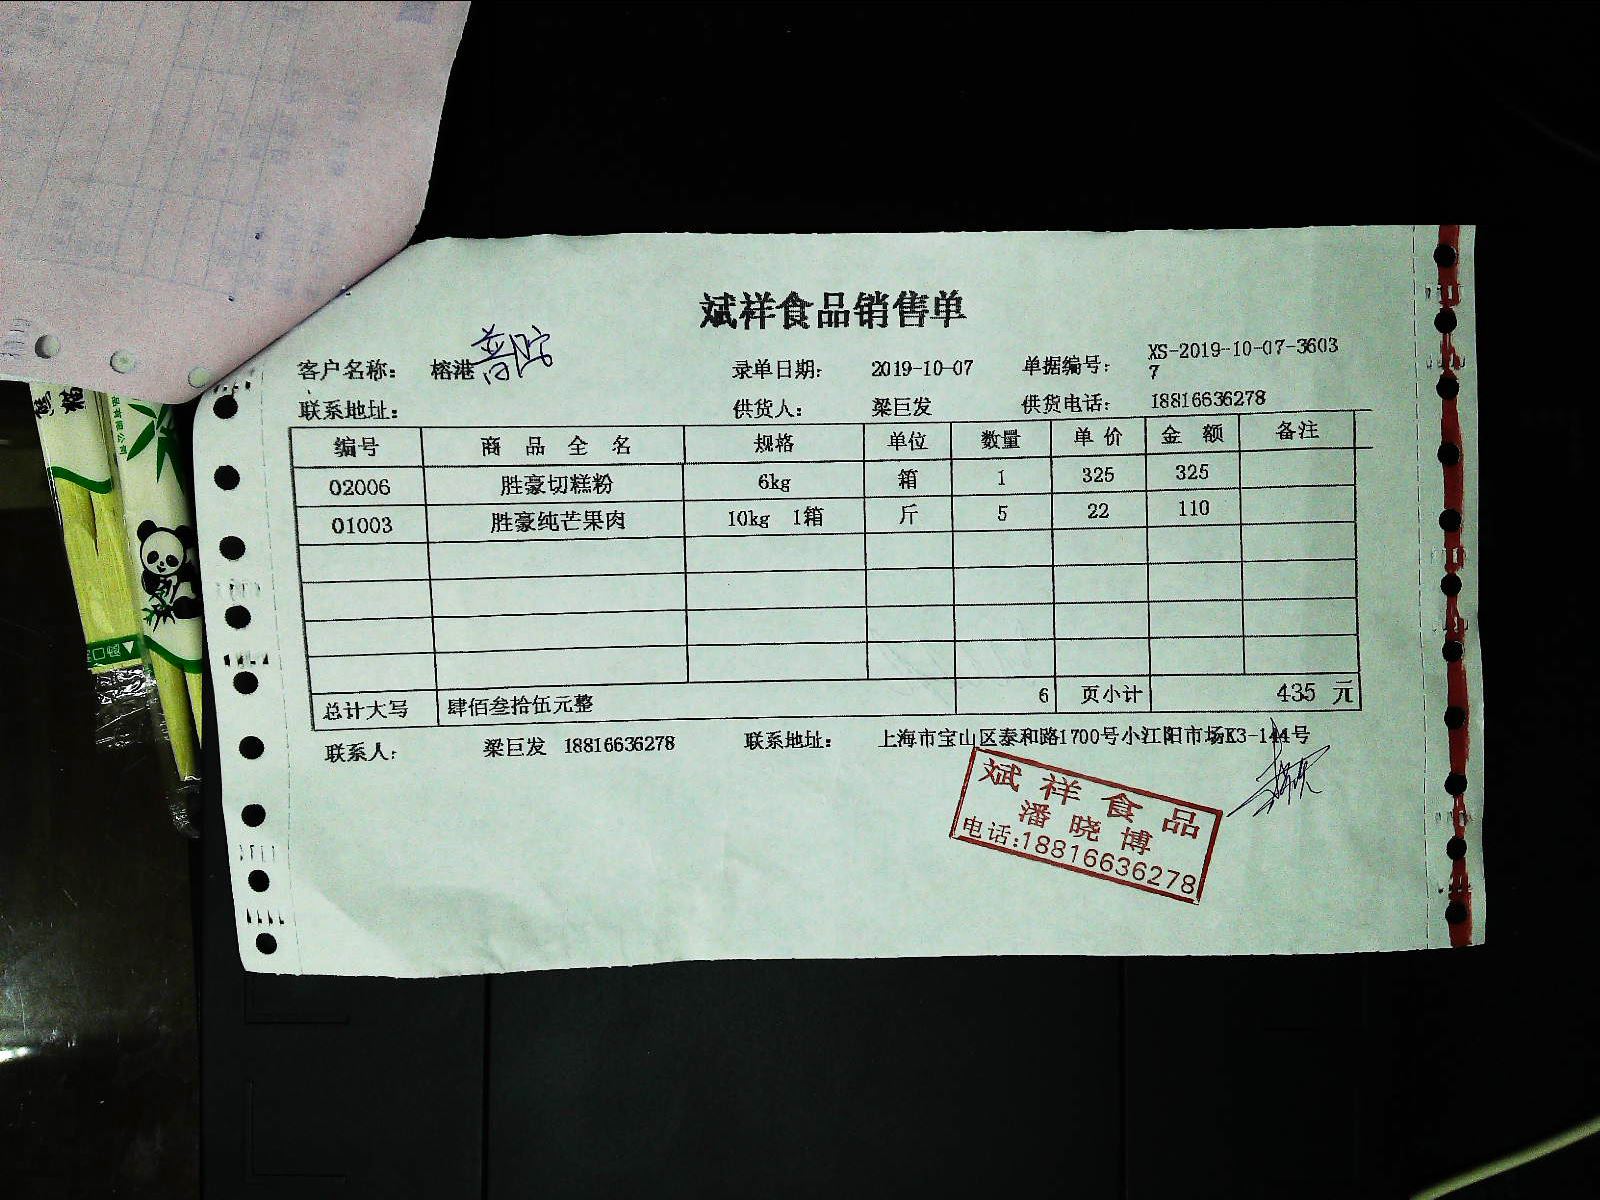 斌祥食品销售单
客户名称： 榕港 录单日期： 2019-10-07 单据编号： XS-2019-10-07-3603
7
联系地址： 供货人： 梁巨发 供货电话： 18816636278
编号 商 品 全 名 规格 单位 数量 单 价 金 额 备注
02006 胜豪切糕粉 6kg 箱 1 325 325
01003 胜豪纯芒果肉 10kg 1箱 斤 5 22 110
总计大写 肆佰叁拾伍元整 6 页小计 435 元
联系人： 梁巨发 18816636278 联系地址： 上海市宝山区泰和路1700号小江阳市场K3-144号
斌祥食品
潘晓博
电话:18816636278